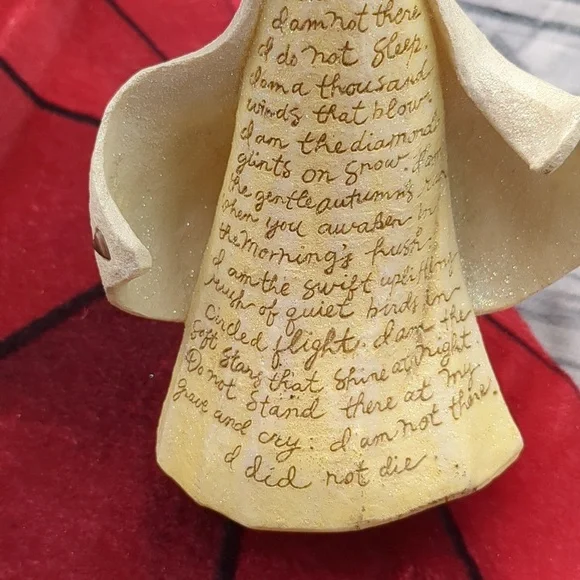 I am not there
I do not sleep.
I am a thousand
winds that blow.
I am the diamond
glints on snow. I am
the gentle autumn's rain
when you awaken in
the Morning's hush.
I am the swift uplifting
rush of quiet birds in
circled flight. I am the
soft stars that shine at night.
Do not stand there at my
grave and cry: I am not there.
I did not die.